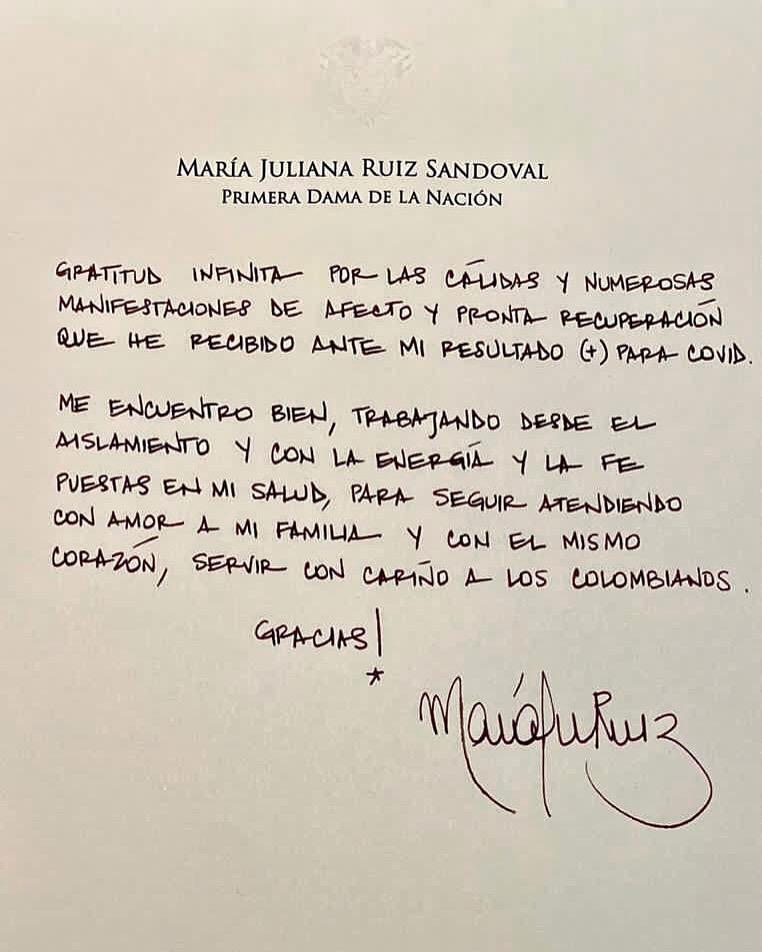 MARÍA JULIANA RUIZ SANDOVAL
PRIMERA DAMA DE LA NACIÓN
GRATITUD INFINITA POR LAS CÁLIDAS Y NUMEROSAS
MANIFESTACIONES DE AFECTO Y PRONTA RECUPERACIÓN
QUE HE RECIBIDO ANTE MI RESULTADO (+) PARA COVID.
ME ENCUENTRO BIEN, TRABAJANDO DESDE EL
AISLAMIENTO Y CON LA ENERGÍA Y LA FE
PUESTAS EN MI SALUD, PARA SEGUIR ATENDIENDO
CON AMOR A MI FAMILIA Y CON EL MISMO
CORAZÓN, SERVIR CON CARIÑO A LOS COLOMBIANOS.
GRACIAS!
*
MaríaJuRuiz